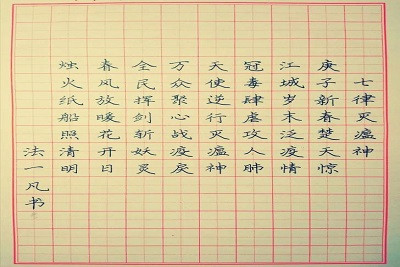 七律灭瘟神
庚子新春楚天惊
江城岁末泛疫情
冠毒肆虐攻人肺
天使逆行灭瘟神
万众聚心战疫戾
全民挥剑斩妖灵
春风放暖花开日
烛火纸船照清明
法一凡书